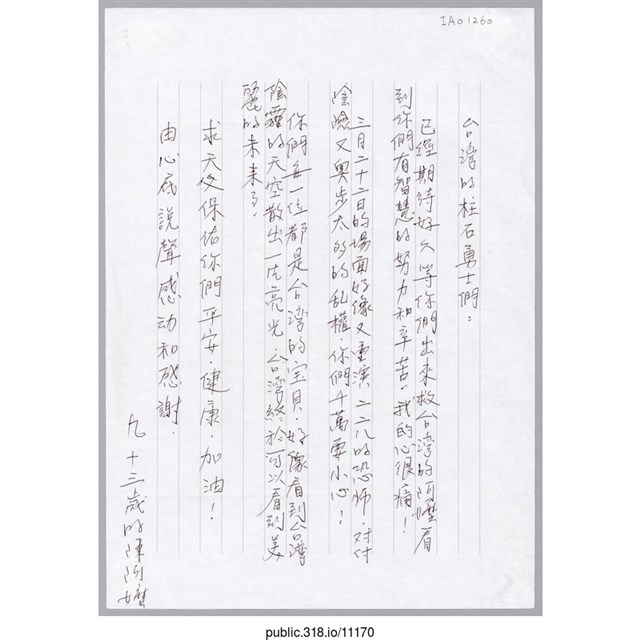 IAO1260
台湾的柱石勇士們：
已經期待好久等你們出來救台湾的阿嬤看
到你們有智慧的努力和辛苦，我的心很痛！
三月二十三日的場面好像又重演二二八的恐怖，对付
陰險又奧步太多的乱權，你們千萬要小心！
你們每一位都是台湾的宝貝，好像看到台湾
陰霾的天空散出一片亮光，台湾終於可以看到美
麗的未来了，
求天父保佑你們平安，健康，加油！
由心底説聲感动和感謝．
九十三歲的陳阿嬤
public.318.io/11170